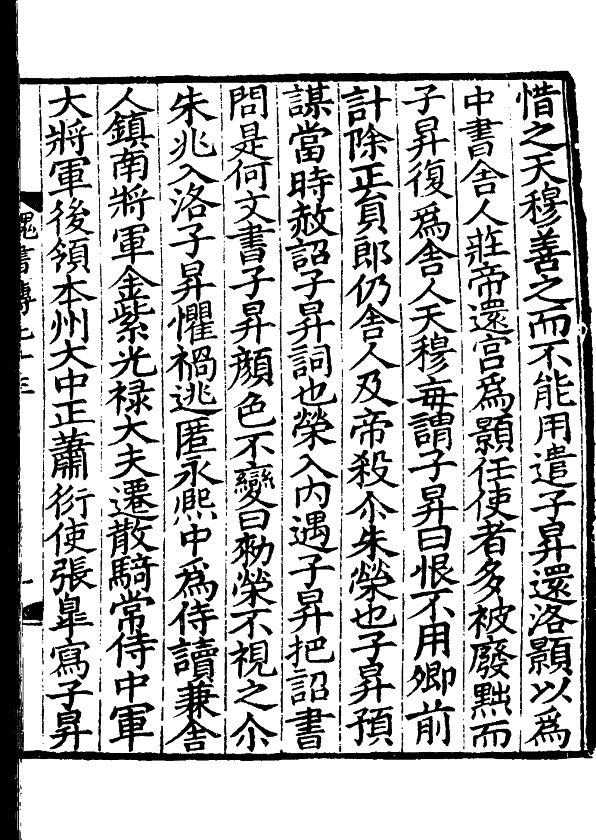 惜之天穆善之而不能用遣子昇還洛顥以爲
中書舍人莊帝還宮爲顥任使者多被廢黜而
子昇復爲舍人天穆每謂子昇曰恨不用卿前
計除正員郎仍舍人及帝殺尒朱榮也子昇預
謀當時赦詔子昇詞也榮入內遇子昇把詔書
問是何文書子昇顏色不變曰勑榮不視之尒
朱兆入洛子昇懼禍逃匿永熙中爲侍讀兼舍
人鎮南將軍金紫光禄大夫遷散騎常侍中軍
大將軍後領本州大中正蕭衍使張臯寫子昇
魏書傳七十三